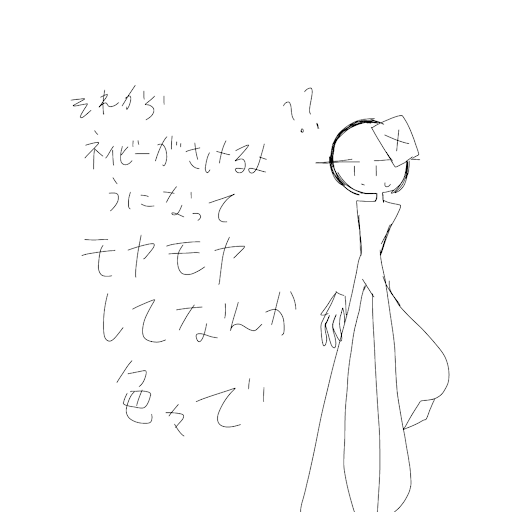 それから
ネイビーがさけるよ
うになって
モヤモヤ
してなんか
色々で
??